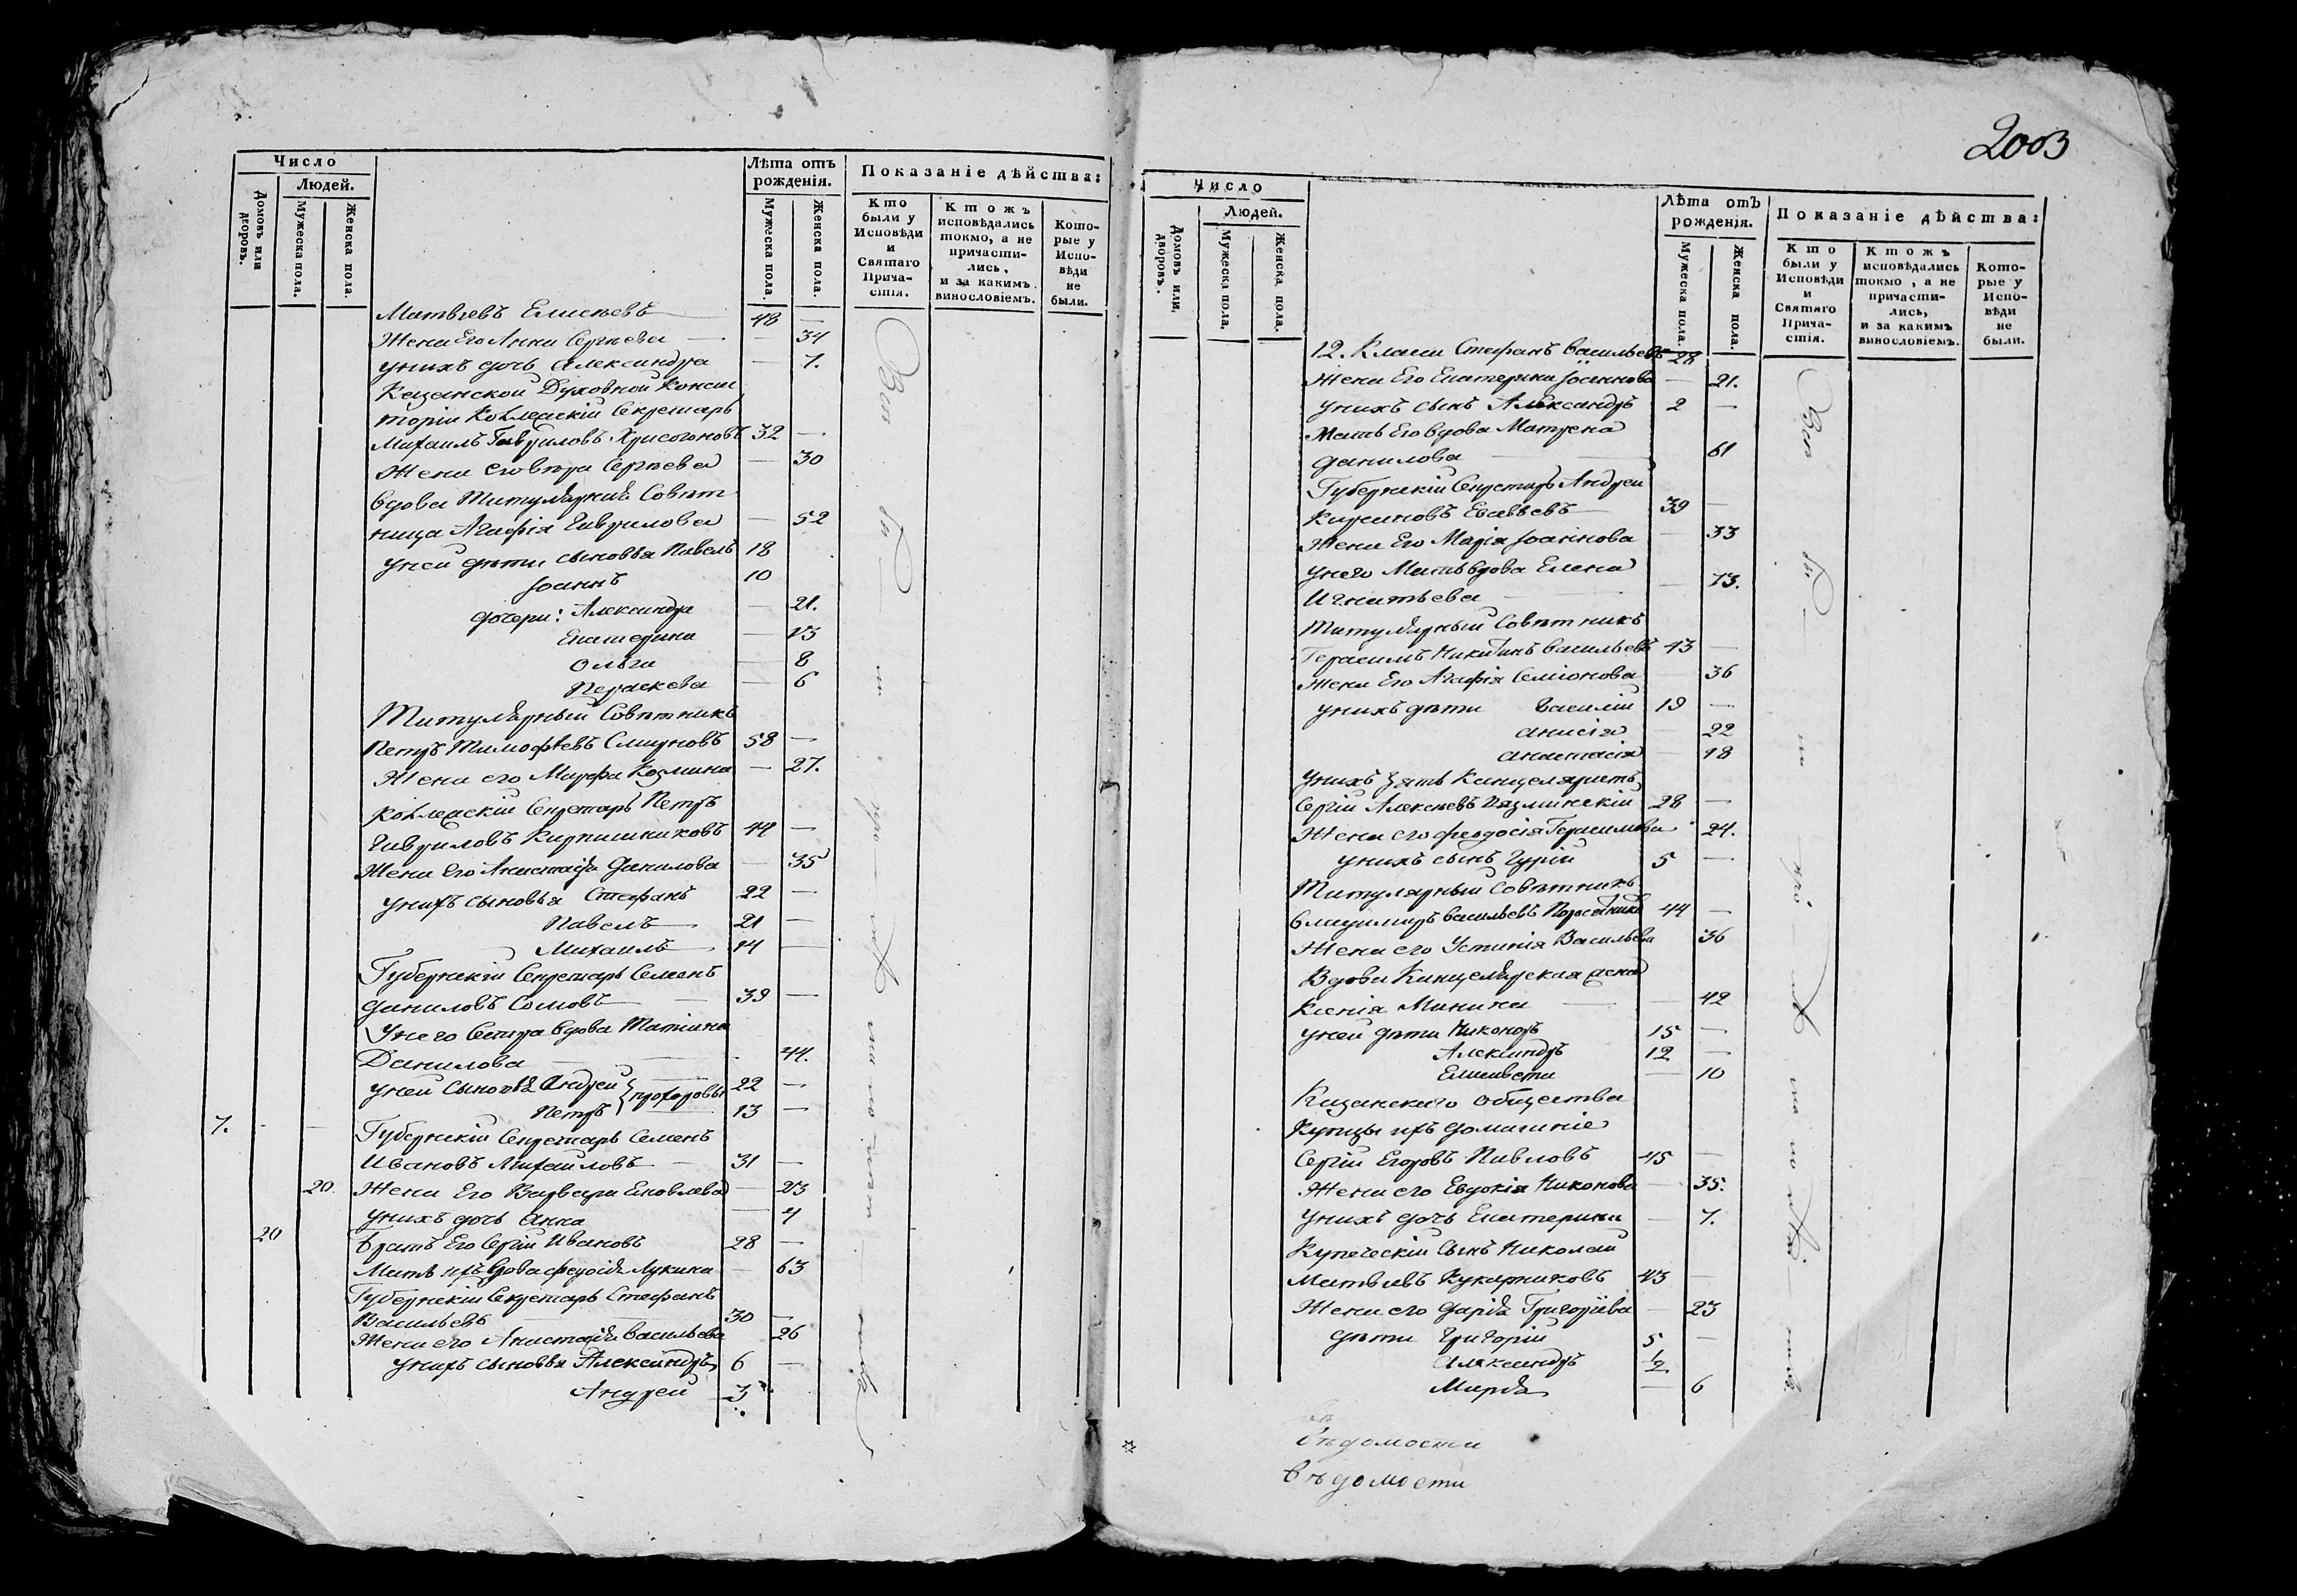 2003
Число
Людей.
Домовъ или дворовъ.
Мужеска пола.
Женска пола.
Лѣта отъ рожденія.
Мужеска пола.
Женска пола.
Показаніе дѣйства:
Кто были у Исповѣди и Святаго Прича-стія.
Ктожъ исповѣдались токмо, а не причасти-лись, и за какимъ винословіемъ.
Кото-рые у Испо-вѣди не были.
Матвѣевъ Елисѣевъ 48 —
Жена Его Анна Сергѣева — 34
унихъ дочь Александра — 7.
Казанской Духовной Конси
торіи Коллежскій Секретарь
Михаилъ Гавриловъ Хрисогоновъ 32 —
Жена его вѣра Сергѣева — 30
вдова Титулярная Совѣт
ница Агафія Гаврилова — 52
уней дѣти, сыновья Павелъ 18
Іоаннъ 10
дочери: Александра — 21.
Екатерина — 13
Ольга — 8
Параскева — 6
Титулярный Совѣтникъ
Петръ Тимофѣевъ Смирновъ 58 —
Жена его Марфа Козмина — 27.
Коллежскій Секретарь Петръ
Гавриловъ Кирпишниковъ 44 —
Жена Его Анастасія Данилова — 35
унихъ сыновья Стефанъ 22 —
Павелъ 21 —
Михаилъ 14 —
Губернскій Секретарь Семенъ
Даниловъ Сомовъ 39 —
Унего Сестра вдова Татіана
Данилова — 44.
уней Сыновья Андрей 22 —
Петръ } прохоровы 13 —
7. Губернскій Секретарь Семенъ
Ивановъ Михаиловъ 31 —
20 Жена Его Варвара Яковлева — 23
унихъ дочь Анна — 4
20 братъ Его Сергій Ивановъ 28 —
Мать ихъ вдова федосія Лукина — 63
Губернскій Секретарь Стефанъ
Васильевъ 30 —
Жена его Анастасія Васильева 26
унихъ сыновья Александръ 6 —
Андрей 3
Число
Людей.
Домовъ или дворовъ.
Мужеска пола.
Женска пола.
Лѣта отъ рожденія.
Мужеска пола.
Женска пола.
Показаніе дѣйства:
Кто были у Исповѣди и Святаго Прича-стія.
Ктожъ исповѣдались токмо, а не причасти-лись, и за какимъ винословіемъ.
Кото-рые у Испо-вѣди не были.
12. Класа Стефанъ Васильевъ 28
Жена Его Екатерина Іоаннова — 21.
унихъ сынъ Александръ 2 —
Мать Его вдова Матрена
Данилова — 61
Губернскій Секретарь Андрей
39 —
Жена Его Марія Іоаннова — 33
унего Мать вдова Елена
Игнатьева — 73.
Титулярный Совѣтникъ
Герасимъ Никитинъ Васильевъ 43 —
Жена Его Агафія Семіонова — 36
унихъ дѣти Василій 19 —
Анисія 22
Анастасія — 18
унихъ зять Канцеляристъ
Сергій Алексѣевъ 28 —
Жена его феодосія Герасимова 24.
унихъ сынъ Гурій 5 —
Титулярный Совѣтникъ
Владимиръ Васильевъ 44 —
Жена его Устинія Васильева 36
Вдова Канцелярская
Ксенія Минина — 42
уней дѣти Никоноръ 15 —
Александръ 12 —
Елисавета — 10
Казанскаго общества
Купцы ихъ домашніе
Сергій Егоровъ Павловъ 45 —
Жена его Евдокія Никонова — 35.
унихъ дочь Екатерина — 7.
Купеческій Сынъ Николай
Матвѣевъ Кукарниковъ 43 —
Жена его Дарія Григоріева — 23
дѣти Григорій 5 —
Александръ 1/2
Марія — 6
вѣдомости
вѣдомости